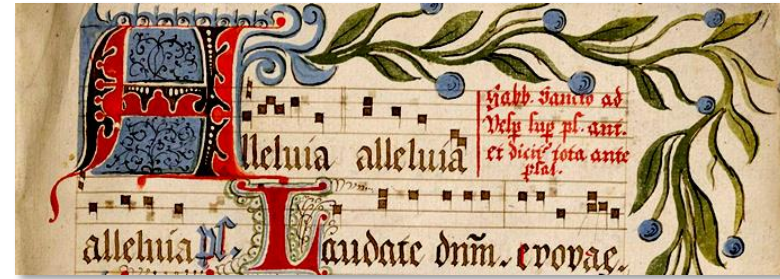 Alleluia alleluia
Sabb. Sancto ad
Vesp sup ps. ant.
et dicit̄ tota ante
psal.
alleluia ps. Laudate dnm̄. evovae.